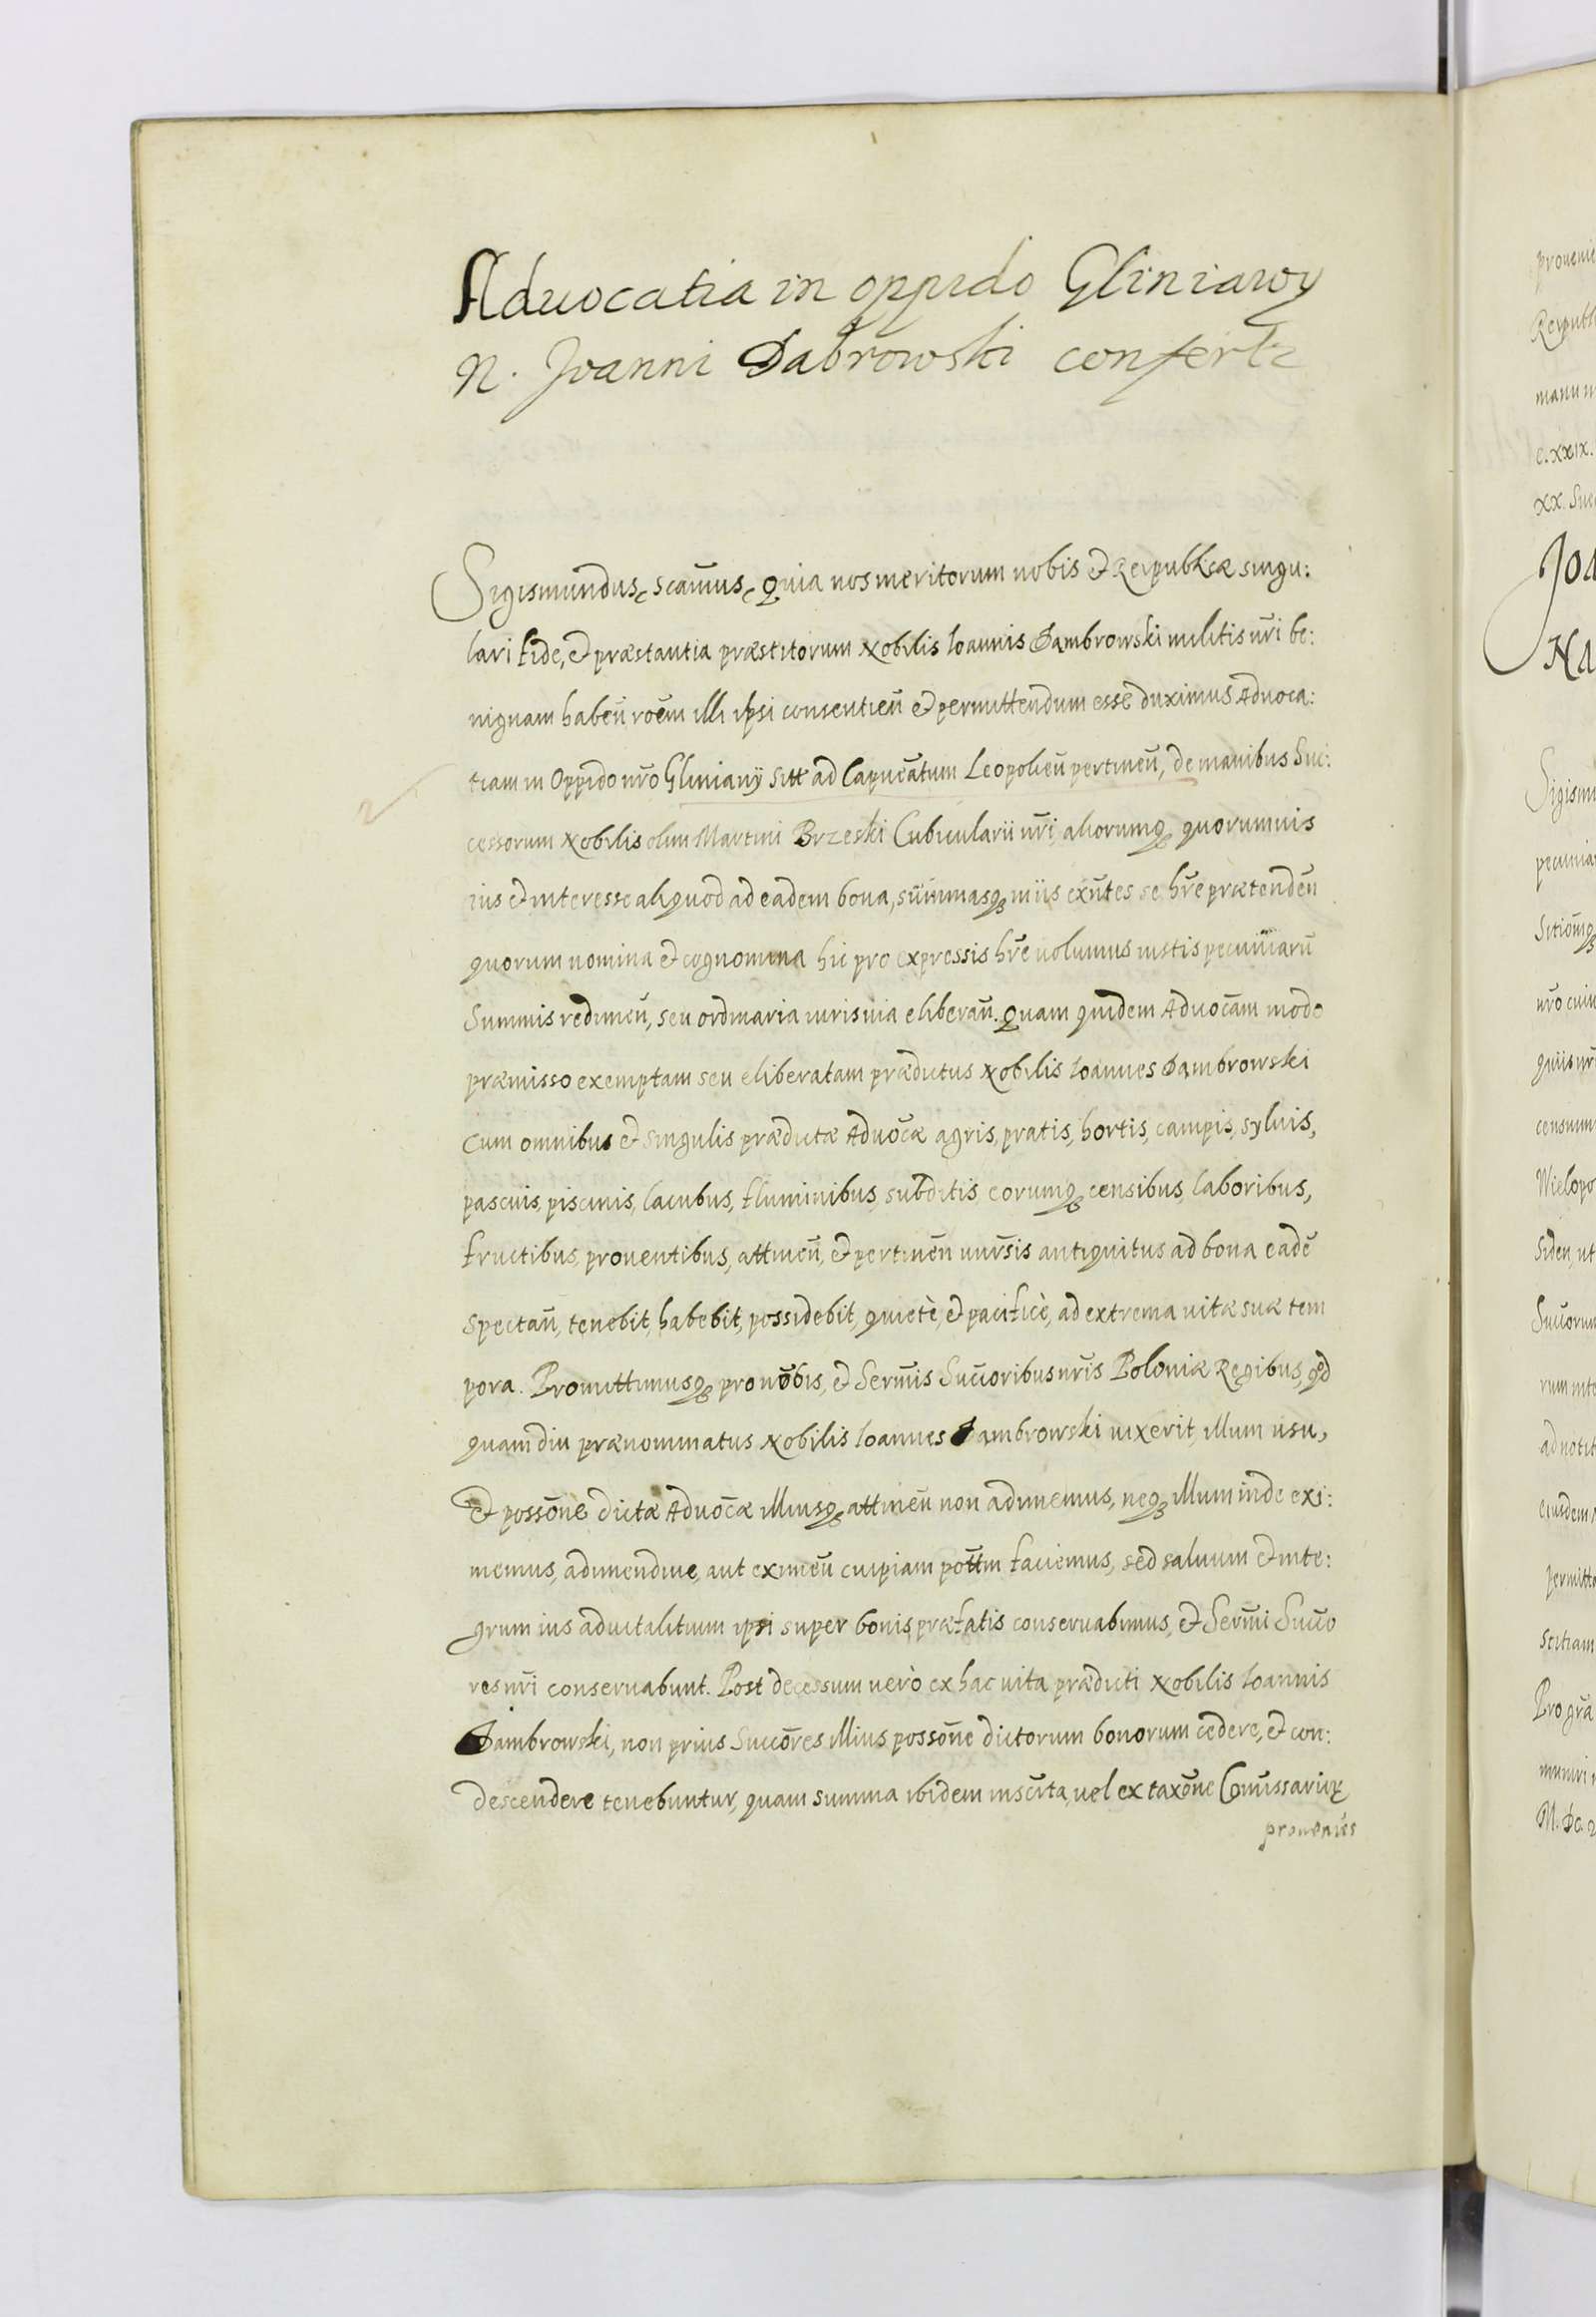 Aduocatia in oppido Gliniawy
N. Joanni Dabrowski confertr
Sigismundus, scamus, Quia nos meritorum nobis et Reipublicæ singu:
lari fide, et præstantia præstitorum Nobilis Ioannis Dambrowski militis nr̄i be:
nignam haben̄ roēm illi ipsi consentien̄ et permittendum esse duximus Aduoca:
tiam in Oppido nr̄o Gliniany sitt ad Capnēatum Leopolien̄ pertinen̄, de manibus Suc:
cessorum Nobilis olim Martini Brzeski Cubicularii nr̄i, aliorumq quorumuis
ius et interesse aliquod ad eadem bona, sum̄masq in iis exn̄tes se hr̄e prætenden̄
quorum nomina et cognomina hic pro expressis hr̄e uolumus iustis pecuniarū
Summis redimen̄, seu ordinaria iuris uia eliberan̄. Quam quidem Aduocām modo
præmisso exemptam seu eliberatam prædictus Nobilis Ioannes Dambrowski
cum omnibus et singulis prædictæ Aduocæ agris, pratis, hortis, campis, syluis,
pascuis, piscinis, lacubus, fluminibus, subditis eorumq censibus, laboribus,
fructibus, prouentibus, attinen̄, et pertinen̄ uniūrsis antiquitus ad bona eadē
spectan̄, tenebit, habebit, possidebit, quietè, et pacificè, ad extrema uitæ suæ tem
pora. Promittimusq pro nobis, et Serm̄is Succoribus nr̄is Poloniæ Regibus, qd
quamdiu prænominatus Nobilis Ioannes Dambrowski uixerit, illum usu,
et possōne dictæ Aduocæ illiusq attinen̄ non adimemus, neq illum inde exi:
memus, adimendiue, aut eximen̄ cuipiam pottm faciemus, sed saluum et inte:
grum ius aduitalitium ipsi super bonis præfatis conseruabimus, et Serm̄i Succo
res nr̄i conseruabunt. Post decessum uerò ex hac uita prædicti Nobilis Ioannis
Dambrowski, non prius Succōres illius possōne dictorum bonorum cedere, et con:
descendere tenebuntur, quam summa ibidem inscrīta, uel ex taxōne Com̄issarior
proueniēs